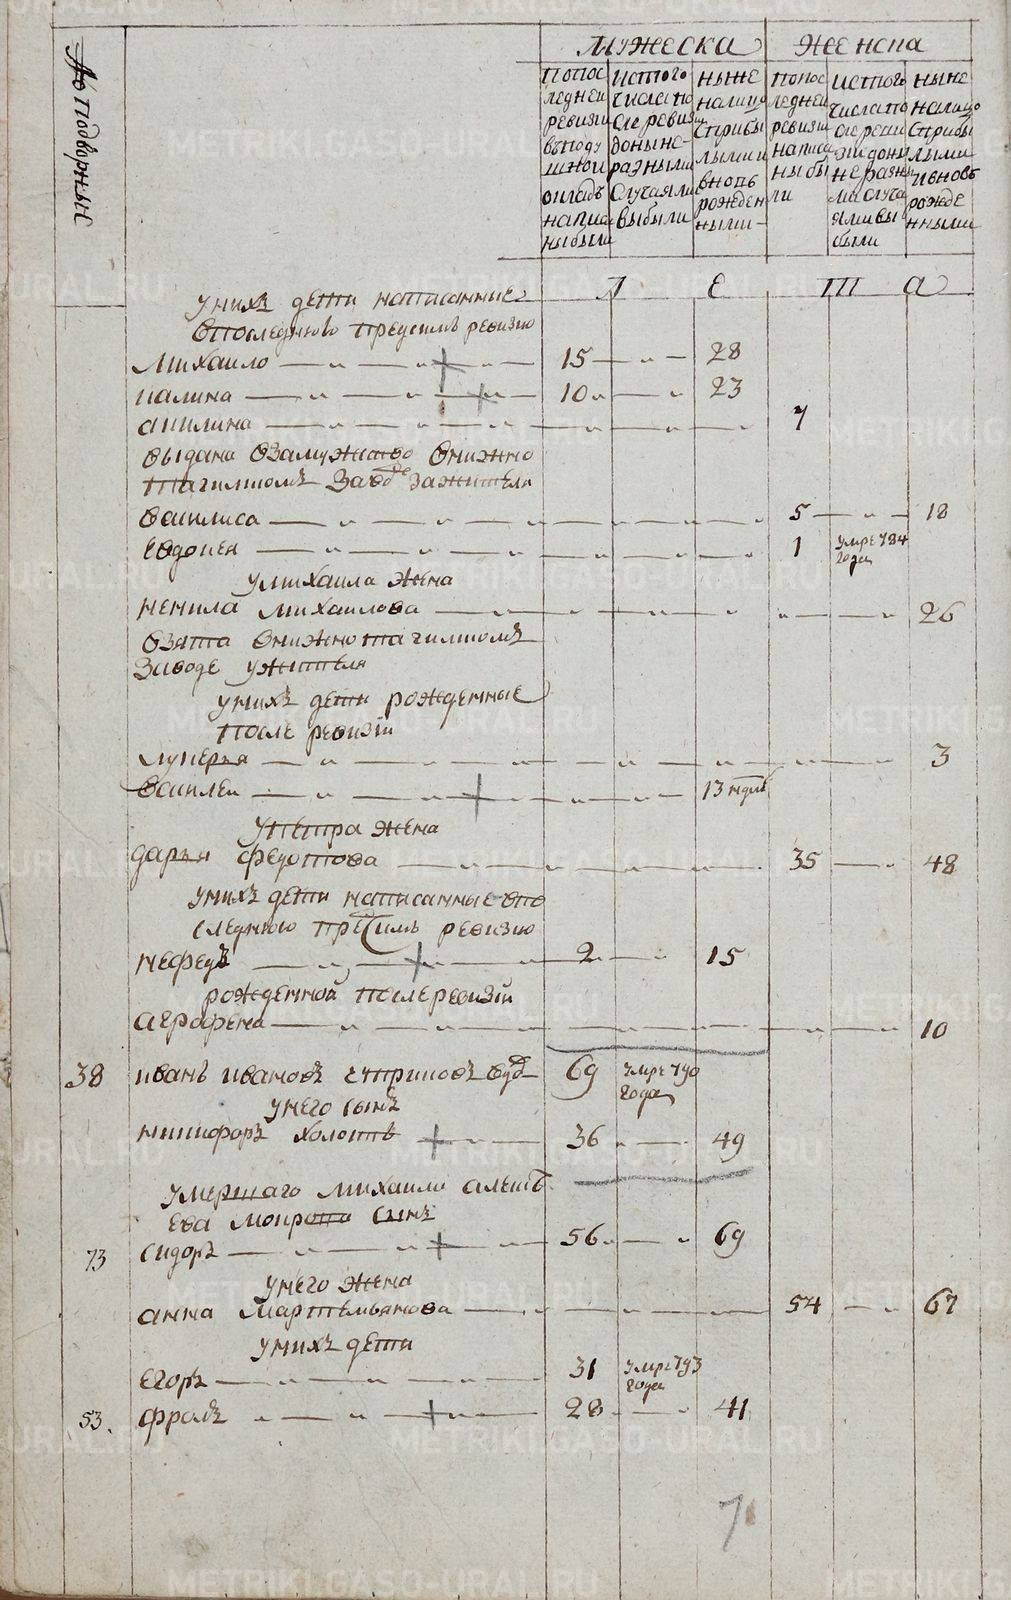 № подворный
Мужеска
Женска
По последней ревизии в подушной оклад написаны были
Ис того числа после ревизии до ныне разными случаями выбыли
Ныне на лицо с прибылыми и вновь рожденными
По последней ревизии написаны были
Ис того числа после ревизии до ныне разными случаями выбыли
Ныне на лицо с прибылыми и вновь рожденными
Л е т а
у них дети написанные
в последнюю пред сим ревизию
Михаило 15 28
Калина 10 23
Акилина 7
выдана в замужство в нижно
тагилском заводе за жителя
Василиса 5 18
Евдокея 1 умре 784 года
у михаила жена
ненила михаилова 26
взята в нижнотагилском
заводе у жителя
у них дети рожденные
после ревизии
лукерья 3
василеи 13 недль
у петра жена
дарья федотова 35 48
у них дети написанные в по
следнюю пред сим ревизию
нефедъ 2 15
рожденной после ревизии
агрофена 10
38 иванъ ивановъ вд 69 умре 790 года
у него сынъ
никифоръ холостъ 36 49
умершаго михаила
сынъ
73 сидоръ 56 69
у него жена
анна мартемьянова 54 67
у них дети
Егоръ 31 умре 793 года
53. фролъ 28 41
7
METRIKI.GASO-URAL.RU